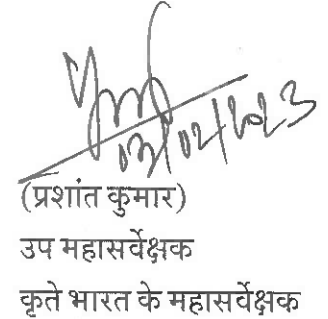 03/02/2023
(प्रशांत कुमार)
उप महासर्वेक्षक
कृते भारत के महासर्वेक्षक